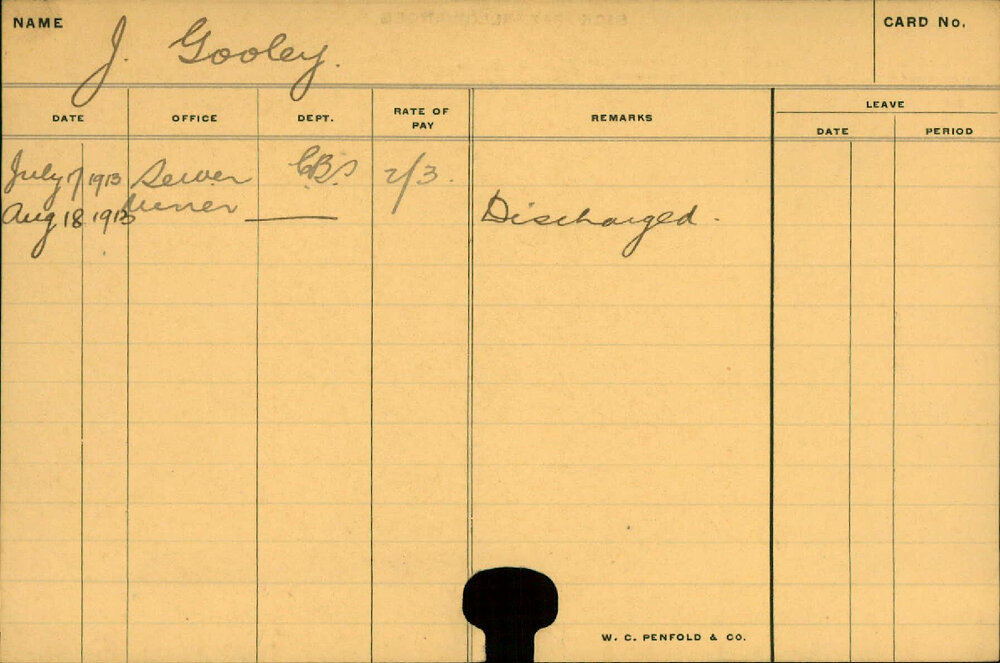 NAME J. Gooley. CARD No.
DATE OFFICE DEPT. RATE OF PAY REMARKS LEAVE
DATE PERIOD
July 17 1913 Sewer CBS 2/3.
Aug 18 1913 Miner — Discharged.
W. C. PENFOLD & CO.